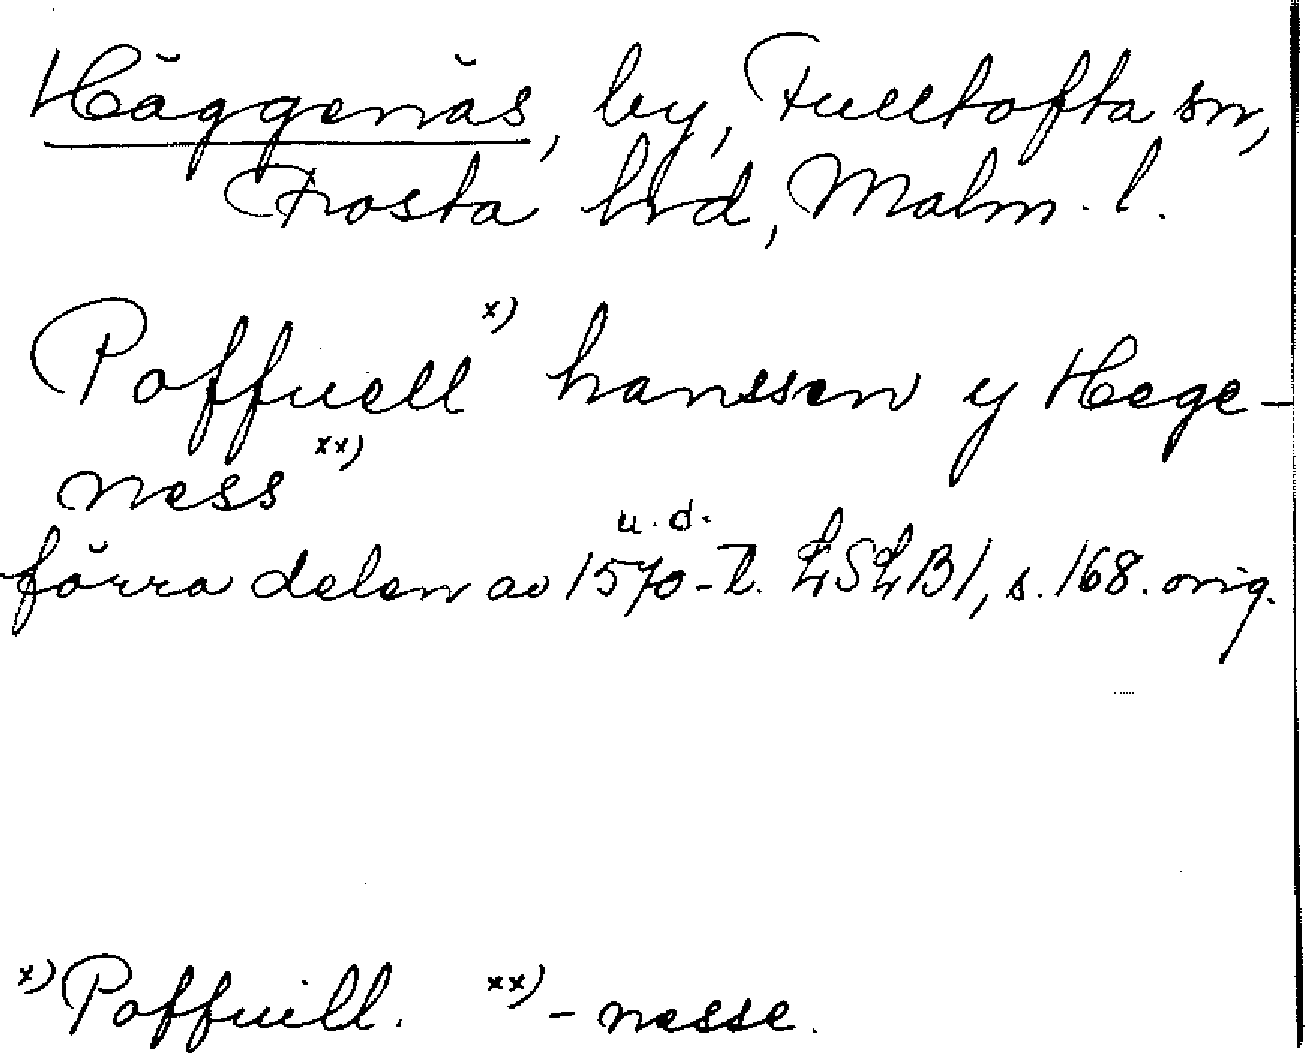 Häggenäs, by, Fulltofta sn,
Frosta hrd, Malm. l.
Poffuell x) hanssen y Hege-
ness xx)
u. d.
förra delen av 1570-t. LSLB1, s. 168. orig.
x) Poffuill. xx) - nesse.